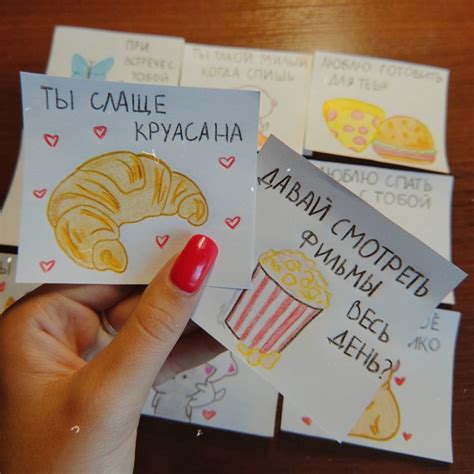 ПРИ
ВСТРЕЧЕ С
ТОБОЙ
ТЫ ТАКОЙ МИЛЫЙ
КОГДА СПИШЬ
ЛЮБЛЮ ГОТОВИТЬ
ДЛЯ ТЕБЯ
ТЫ СЛАЩЕ
КРУАСАНА
ЛЮБЛЮ СПАТЬ
С ТОБОЙ
ДАВАЙ СМОТРЕТЬ
ФИЛЬМЫ
ВЕСЬ
ДЕНЬ?